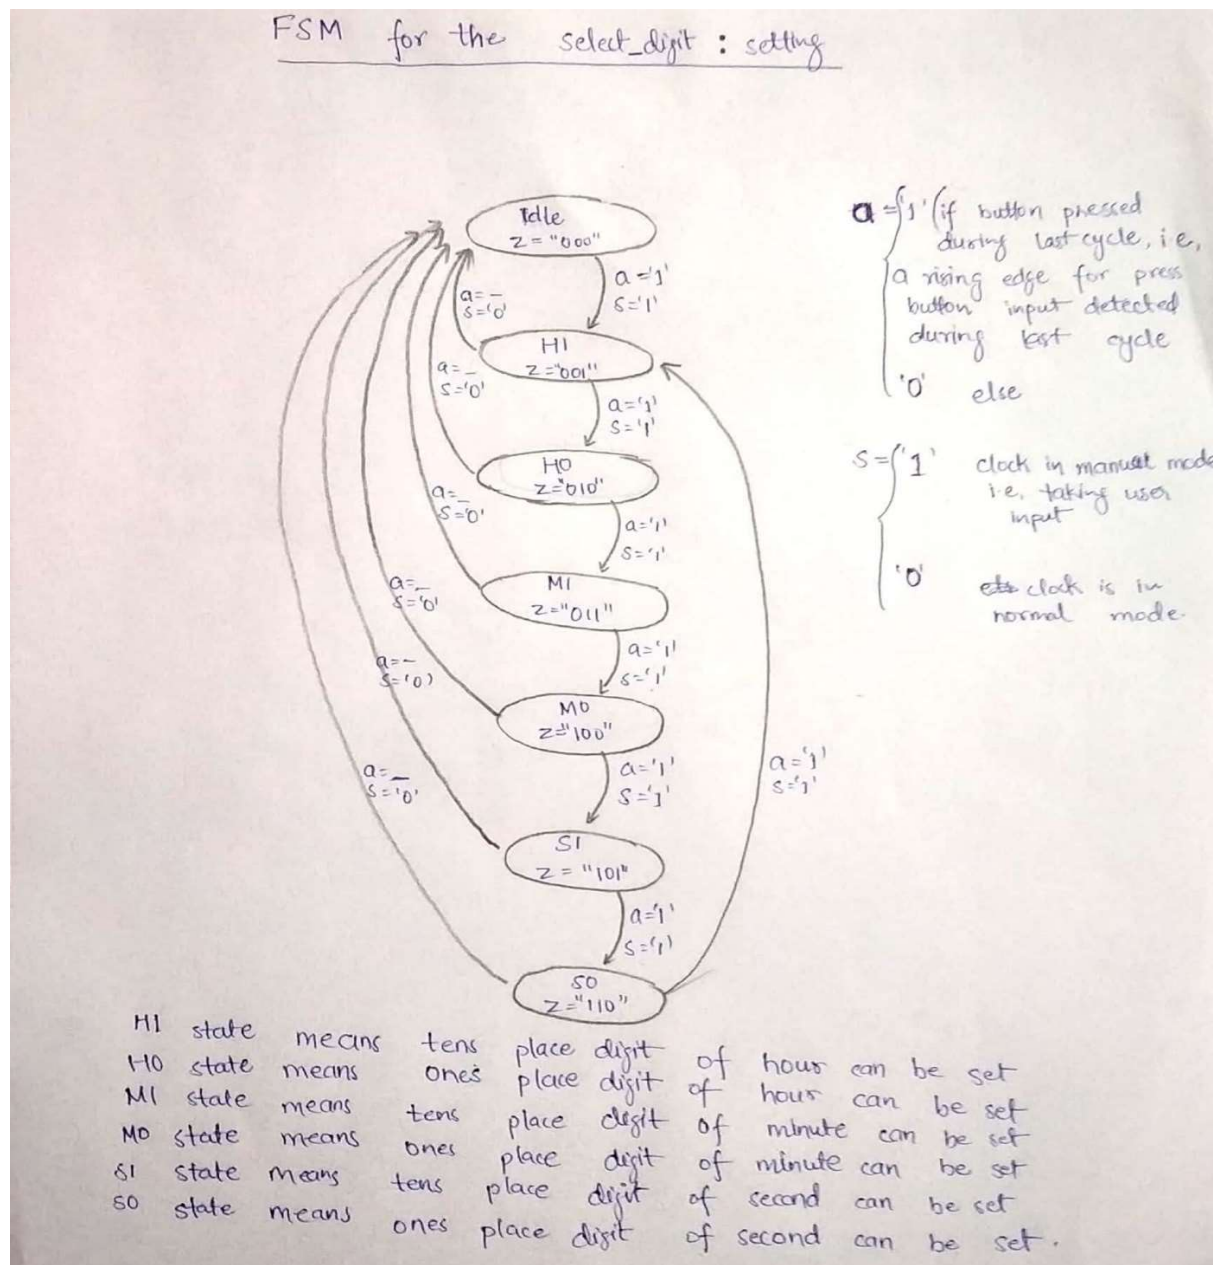 FSM for the select_digit : setting
Idle
Z = "000"
a = '1'
S = '1'
a = _
S = '0'
H1
Z = "001"
a = _
S = '0'
a = '1'
S = '1'
H0
Z = "010"
a = _
S = '0'
a = '1'
S = '1'
M1
Z = "011"
a = _
S = '0'
a = '1'
S = '1'
a = _
S = '0'
M0
Z = "100"
a = _
S = '0'
a = '1'
S = '1'
a = '1'
S = '1'
S1
Z = "101"
a = '1'
S = '1'
S0
Z = "110"
a = { '1' (if button pressed
during last cycle, i.e,
a rising edge for press
button input detected
during last cycle
'0' else
S = { '1' clock in manual mode
i.e, taking user
input
'0' clock is in
normal mode.
H1 state means tens place digit of hour can be set
H0 state means ones place digit of hour can be set
M1 state means tens place digit of minute can be set
M0 state means ones place digit of minute can be set
S1 state means tens place digit of second can be set
S0 state means ones place digit of second can be set.